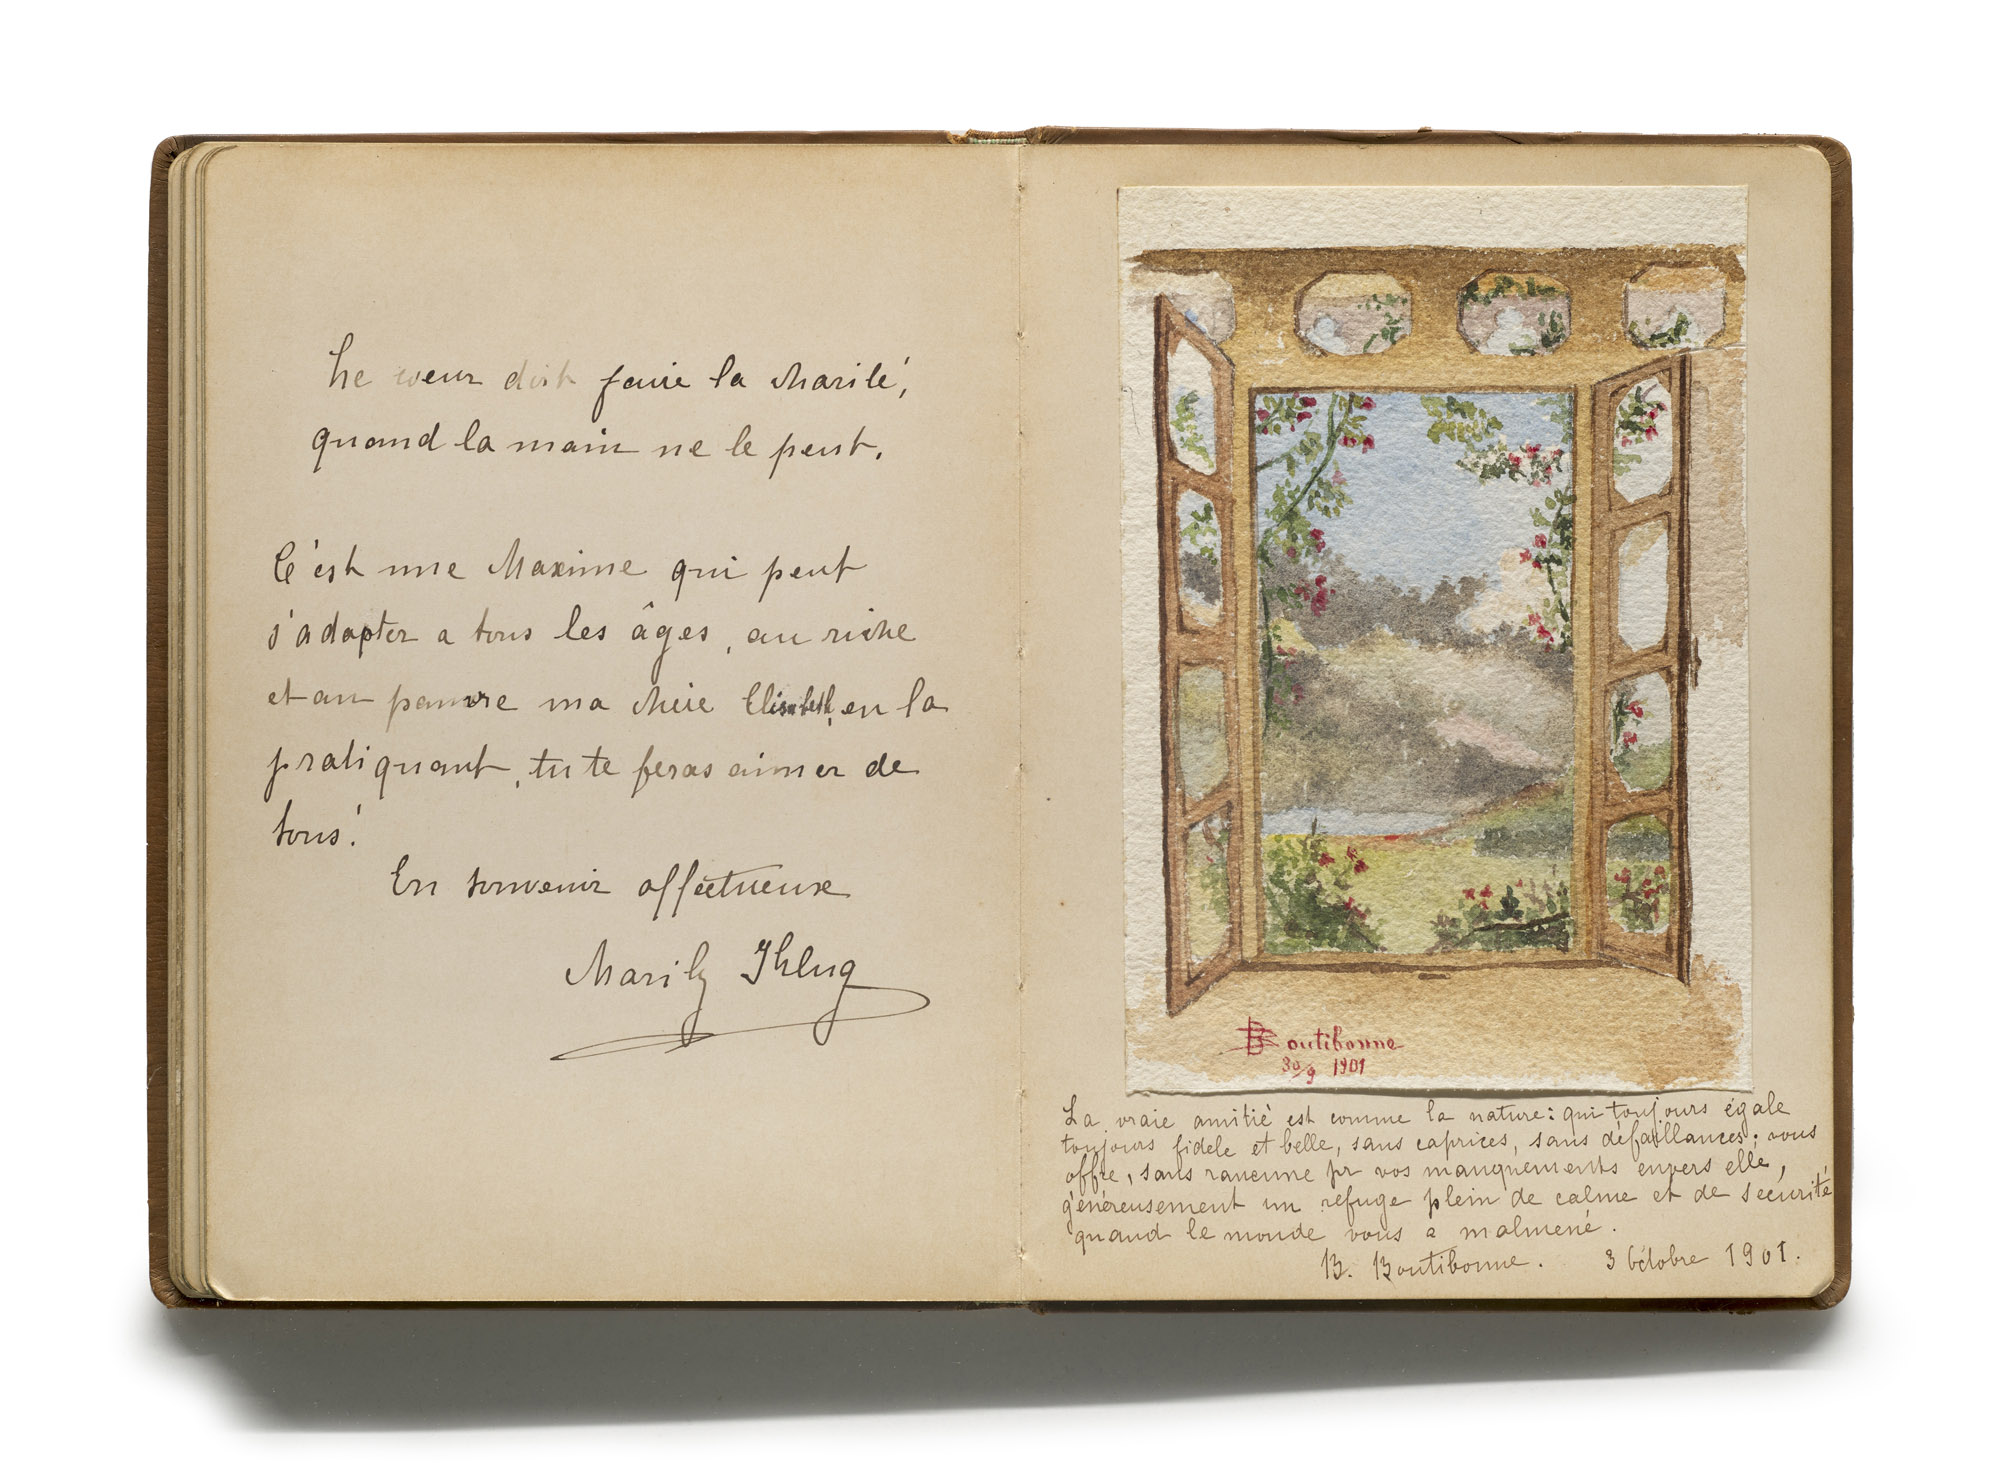 Le coeur doit faire la charité,
quand la main ne le peut.
C'est une Maxime qui peut
s'adapter a tous les âges, au riche
et au pauvre ma chère Elisabeth, en la
pratiquant, tu te feras aimer de
tous!
En souvenir affectueux
Marily
Boutibonne
30/9 1901
La vraie amitié est comme la nature: qui toujours égale
toujours fidele et belle, sans caprices, sans défaillances, vous
offre, sans rancune pr vos manquements envers elle,
généreusement un refuge plein de calme et de sécurité
quand le monde vous a malmené.
B. Boutibonne. 3 Octobre 1901.